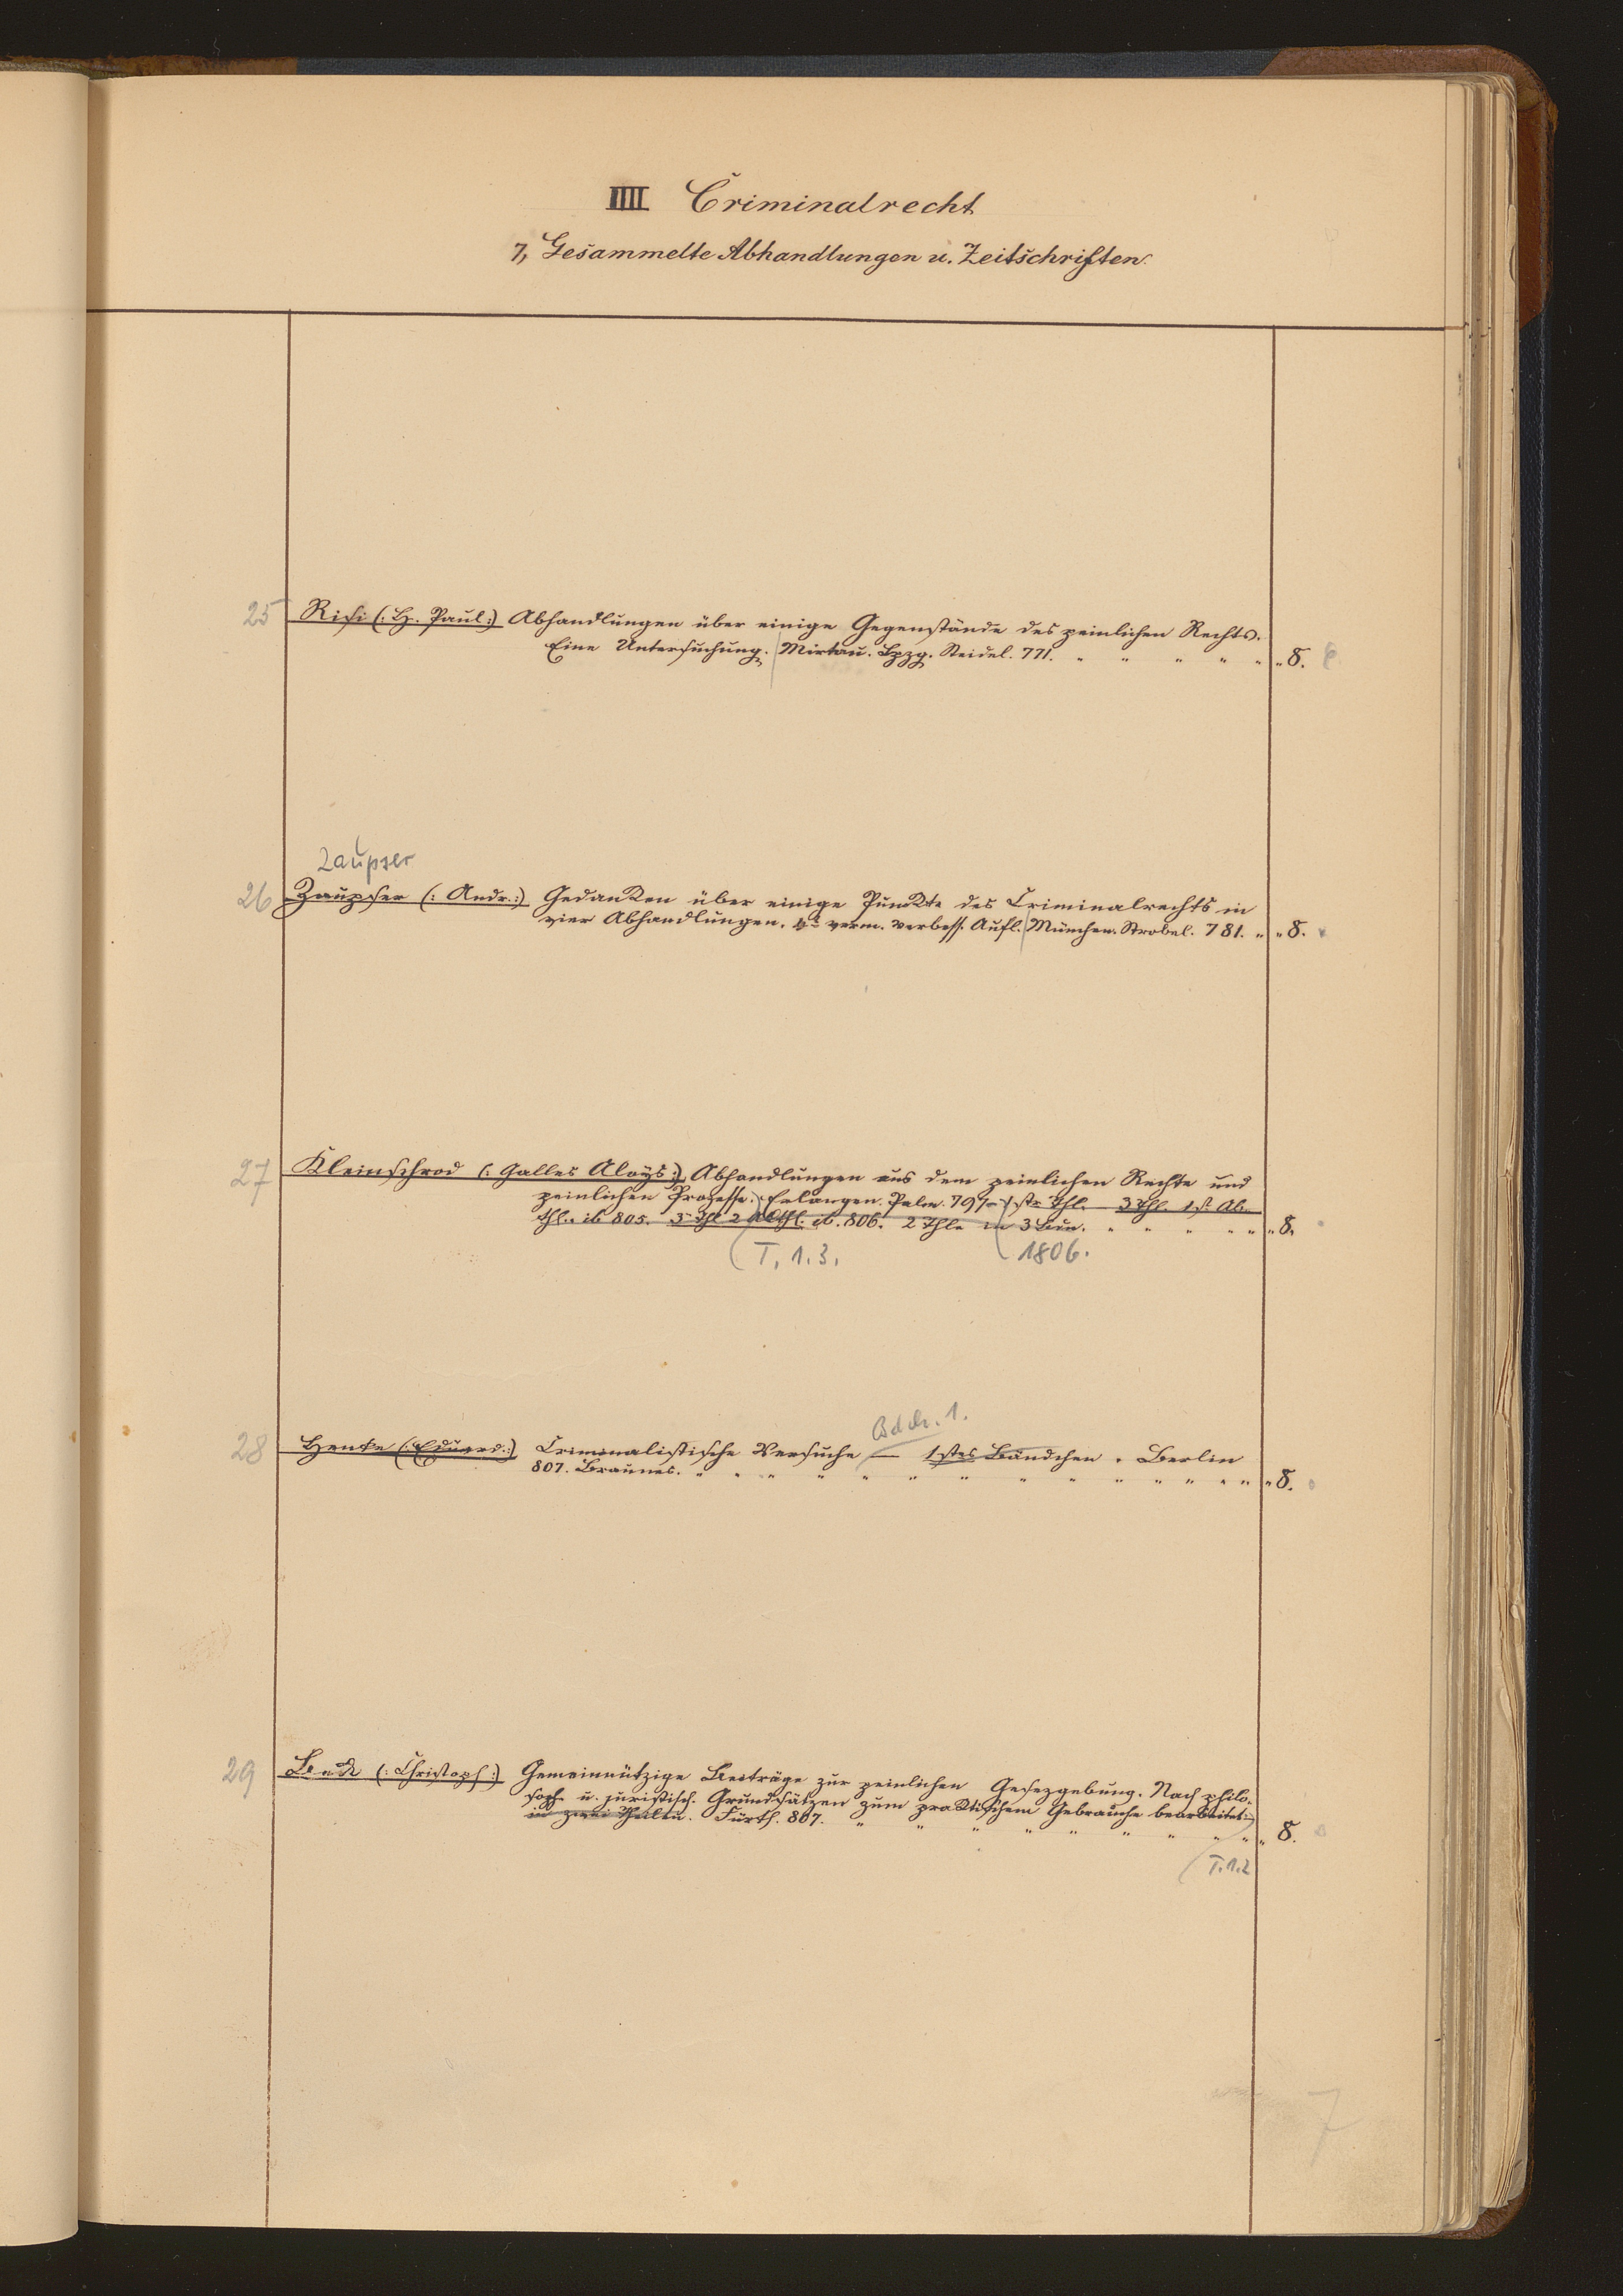 IIII Criminalrecht
7, Gesammelte Abhandlungen u. Zeitschriften.
25 Risi (: H. Paul :) Abhandlungen über einige Gegenstände des peinlichen Rechts.
Eine Untersuchung. Mirtau. Lpzg. Steidel. 771. " " " " " " 8.
Zaupser
26 Zaupser (: Andr. :) Gedanken über einige Punkte des Criminalrechts in
vier Abhandlungen. verm. verbess. Aufl. München. Strobel. 781. " " 8.
27 Kleinschrod (: Galles Aloys :) Abhandlungen aus dem peinlichen Rechte und
peinlichen Prozesse. Erlangen. Palm. 797 1 str Thl. 3 Thl. 1 st Ab-
thl. ib 805. 3r Thl 2 Abthl. ib. 806. 2 Thle in 3 Bdn. " " " " " " 8.
T. 1. 3. 1806.
Bdch. 1.
28 Henke (: Eduard :) Criminalistische Versuche — 1stes Bändchen. Berlin
807. Braunes. " " " " " " " " " " " " " " 8.
29 Beck (: Christoph :) Gemeinnützige Beiträge zur peinlichen Gesezgebung. Nach philo-
soph u. juristisch. Grundsätzen zum praktischem Gebrauche bearbeitet
in zwei Theilen. Fürth. 807. " " " " " " " " " " 8.
T. 1. 2
7